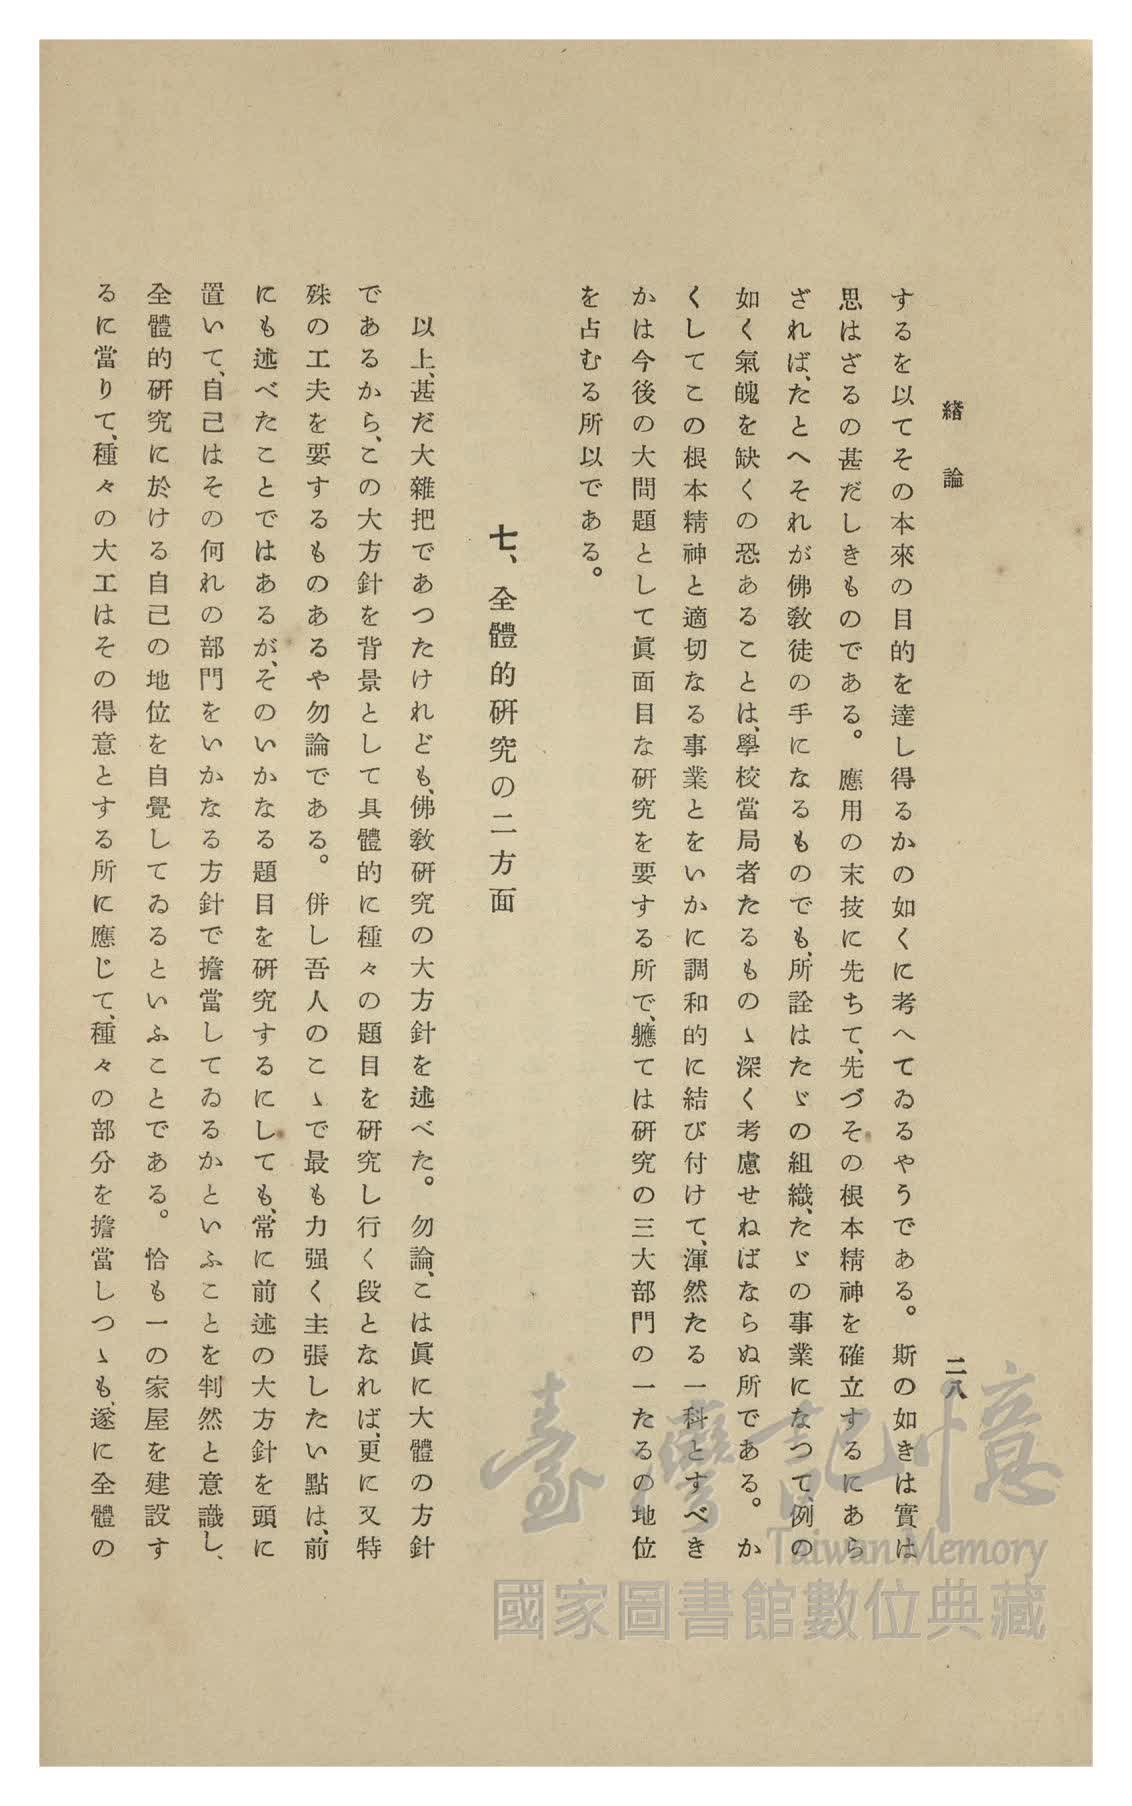 緖論
二八
するを以てその本來の目的を達し得るかの如くに考へてゐるやうである。斯の如きは實は
思はざるの甚だしきものである。應用の末技に先ちて、先づその根本精神を確立するにあら
ざれば、たとへそれが佛敎徒の手になるものでも、所詮はたゞの組織、たゞの事業になつて、例の
如く氣魄を缺くの恐あることは、學校當局者たるものゝ深く考慮せねばならぬ所である。か
くしてこの根本精神と適切なる事業とをいかに調和的に結び付けて、渾然たる一科とすべき
かは今後の大問題として眞面目な硏究を要する所で、軈ては硏究の三大部門の一たるの地位
を占むる所以である。
七、全體的硏究の二方面
以上、甚だ大雜把であつたけれども、佛敎硏究の大方針を述べた。勿論、こは眞に大體の方針
であるから、この大方針を背景として具體的に種々の題目を硏究し行く段となれば、更に又特
殊の工夫を要するものあるや勿論である。併し吾人のこゝで最も力强く主張したい點は、前
にも述べたことではあるが、そのいかなる題目を硏究するにしても、常に前述の大方針を頭に
置いて、自己はその何れの部門をいかなる方針で擔當してゐるかといふことを判然と意識し、
全體的硏究に於ける自己の地位を自覺してゐるといふことである。恰も一の家屋を建設す
るに當りて、種々の大工はその得意とする所に應じて、種々の部分を擔當しつゝも、遂に全體の
臺灣記憶
Taiwan Memory
國家圖書館數位典藏